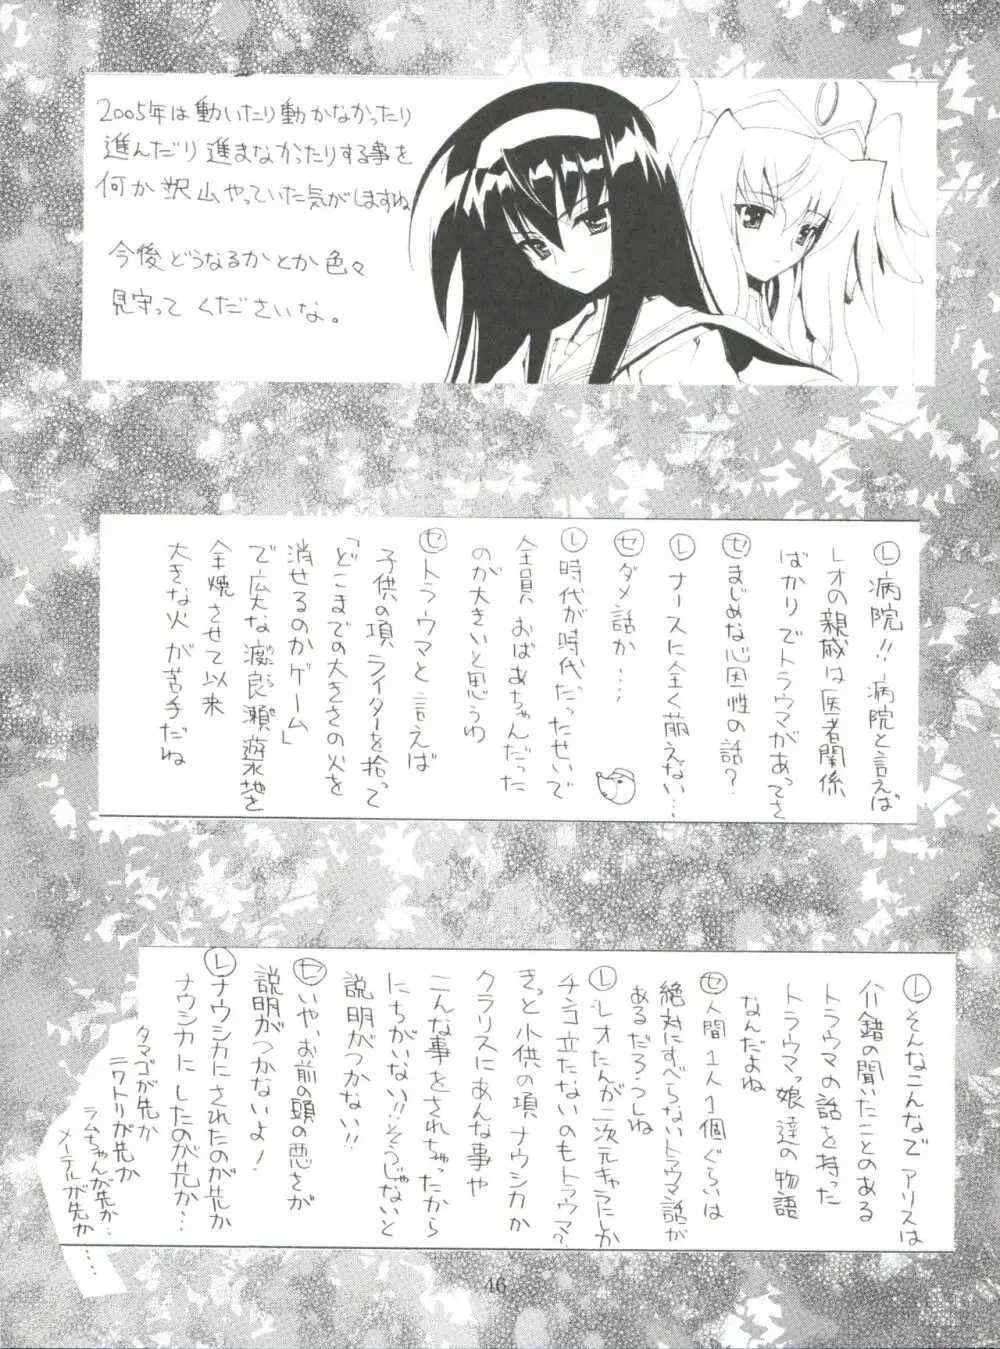 2005年は動いたり動かなかったり
進んだり進まなかったりする事を
何か沢山やっていた気がしますね
今後どうなるかとか色々
見守ってくださいな。
Ⓛ病院!!病院と言えば
レオの親戚は医者関係
ばかりでトラウマがあってさ
㋝まじめな心因性の話?
Ⓛナースに全く萌えない…
㋝ダメ話か….
Ⓛ時代が時代だったせいで
全員おばあちゃんだった
のが大きいと思うわ
㋝トラウマと言えば
子供の項ライターを拾って
「どこまでの大きさの火を
消せるのかゲーム」
で広大な渡良瀬遊水地を
全焼させて以来
大きな火が苦手だね
Ⓛそんなこんなでアリスは
介錯の聞いたことのある
トラウマの話を持った
トラウマっ娘達の物語
なんだよね
㋝人間1人1個ぐらいは
絶対にすべらないトラウマ話が
あるだろうしね
Ⓛレオたんが二次元キャラにしか
チンコ立たないのもトラウマ?
きっと小供の項ナウシカか
クラリスにあんな事や
こんな事をされちゃったから
にちがいない!!そうじゃないと
説明がつかない!!
㋝いや、お前の頭の悪さが
説明がつかないよ!
Ⓛナウシカにされたのが先か
ナウシカにしたのが先か…
タマゴが先か
ニワトリが先か
ラムちゃんが先か…
メーテルが先か………
46